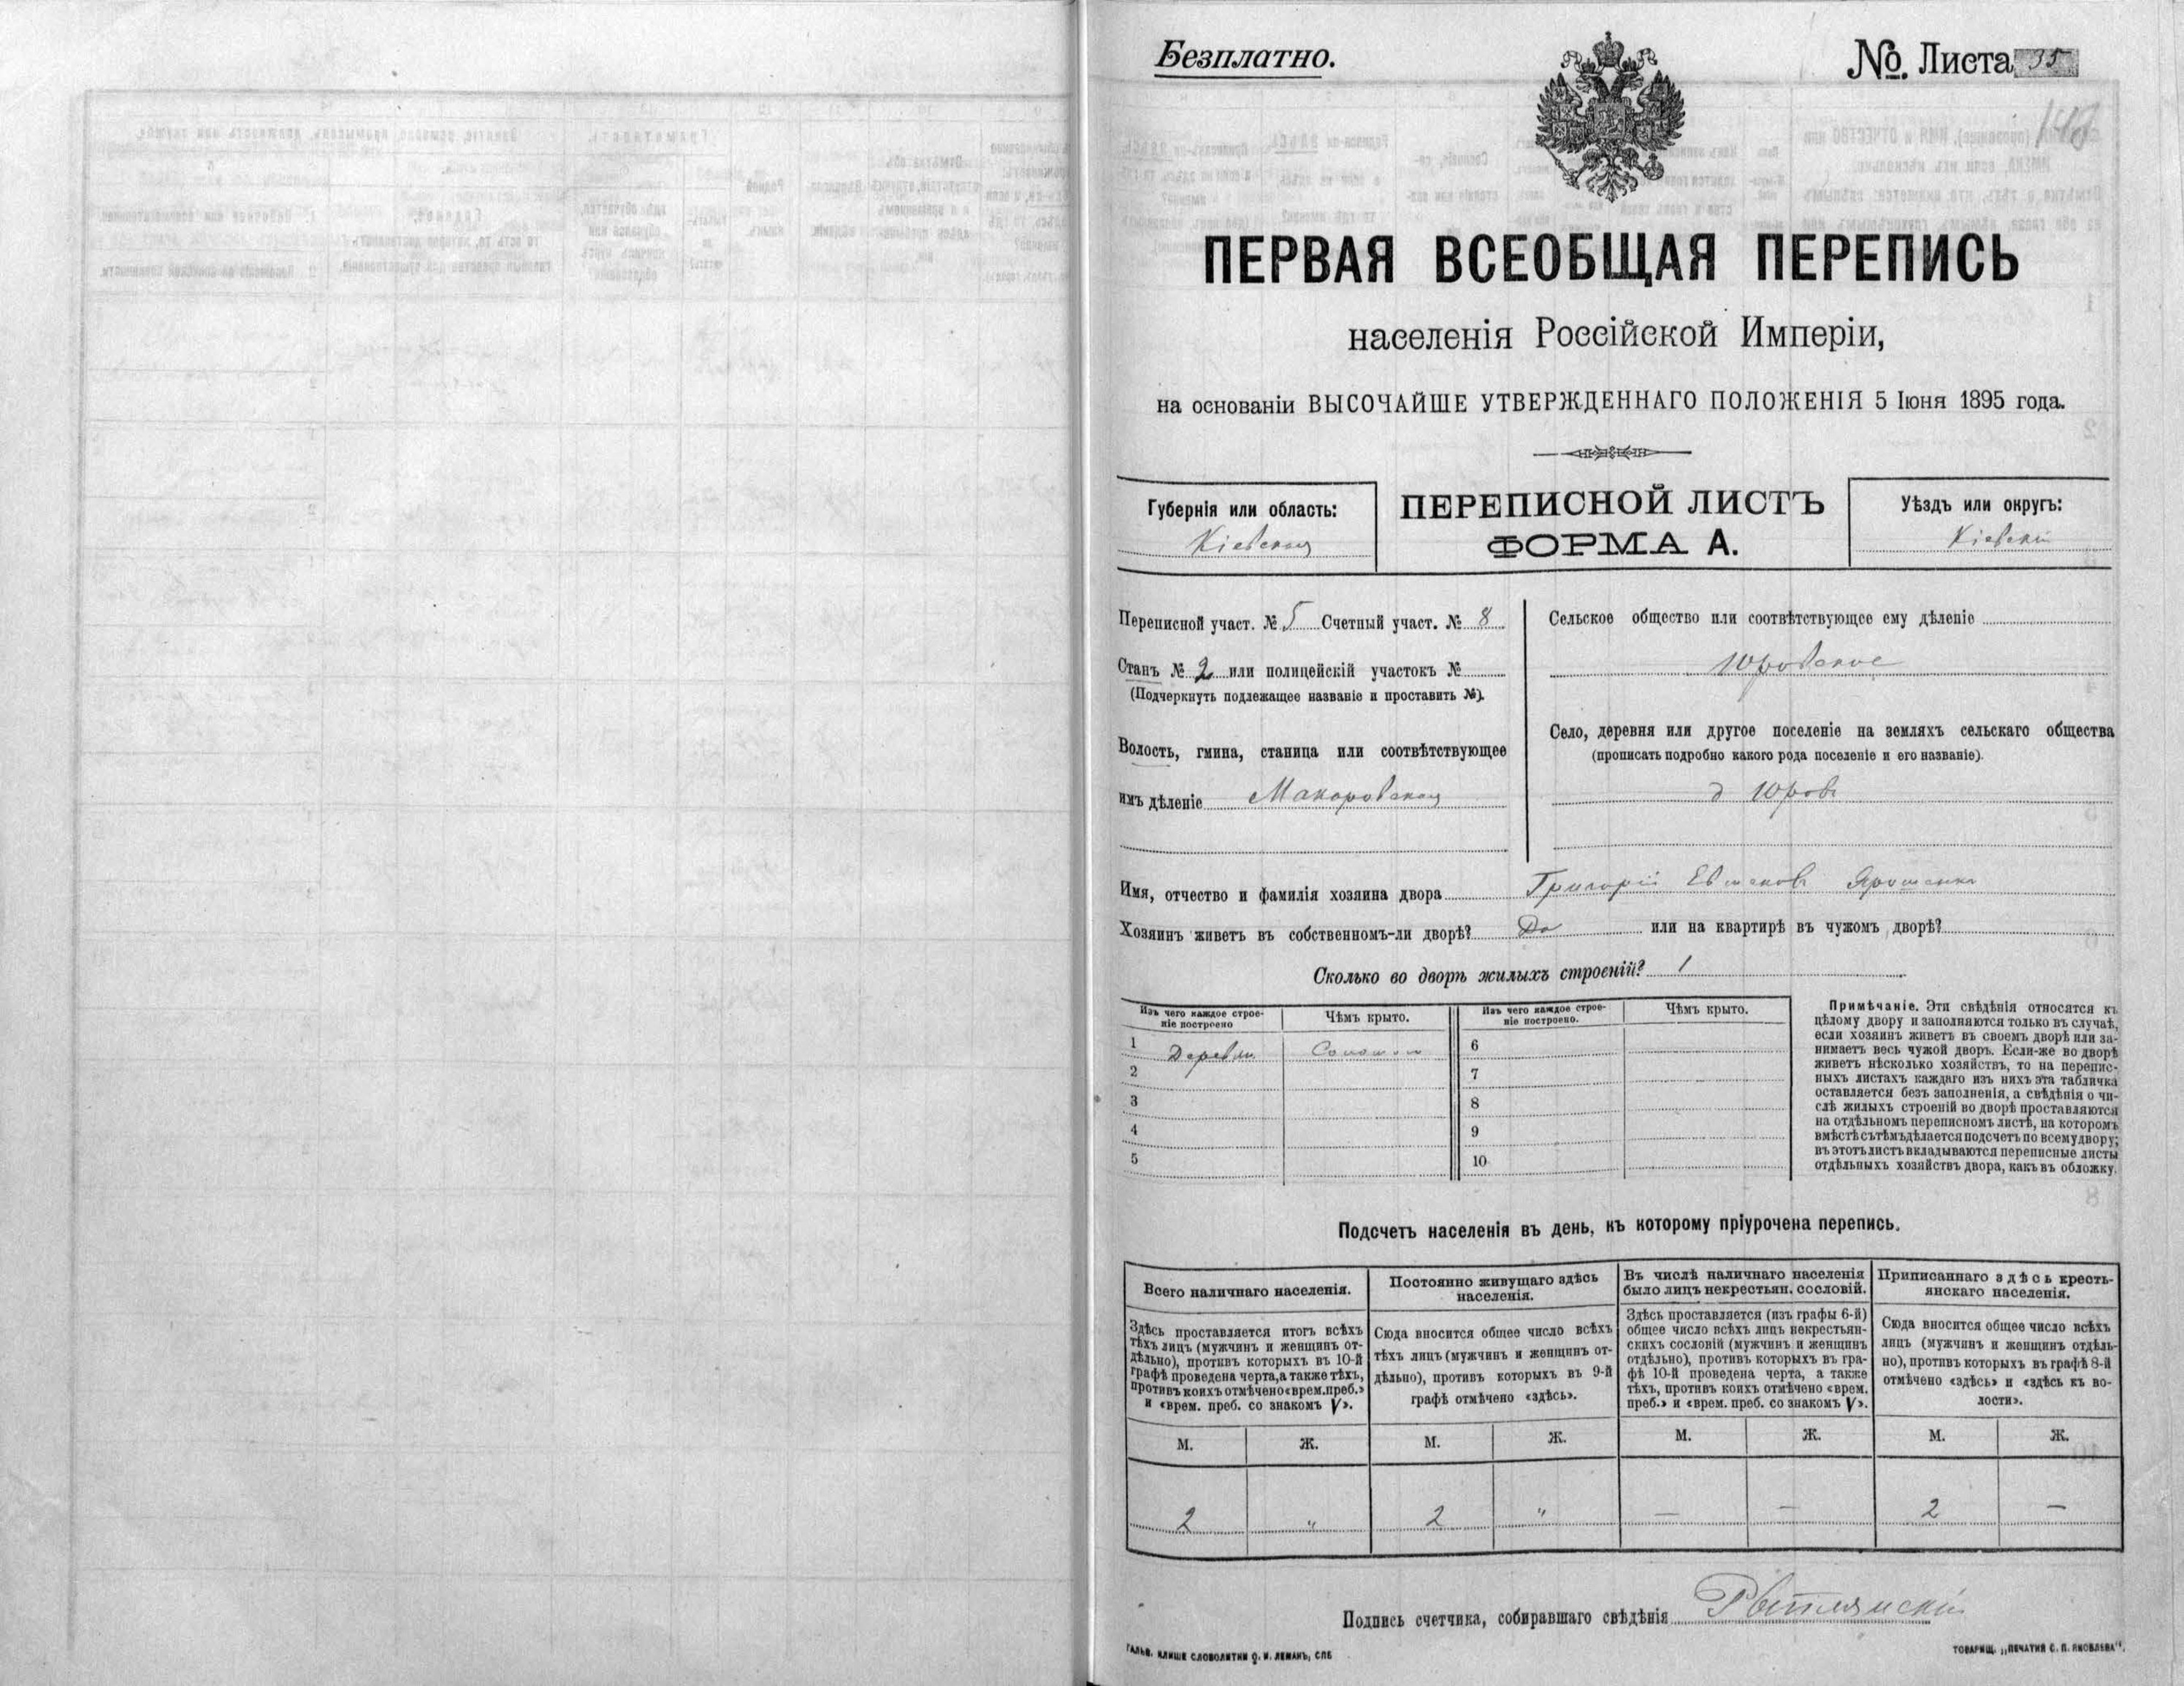 Безплатно.
№. Листа 35
ПЕРВАЯ ВСЕОБЩАЯ ПЕРЕПИСЬ
населенія Россійской Имперіи,
на основаніи ВЫСОЧАЙШЕ УТВЕРЖДЕННАГО ПОЛОЖЕНІЯ 5 Іюня 1895 года.
Губернія или область:
Кіевская
ПЕРЕПИСНОЙ ЛИСТЪ
ФОРМА А.
Уѣздъ или округъ:
Кіевскій
Переписной участ. № 5 Счетный участ. № 8
Станъ № 2 или полицейскій участокъ №
(Подчеркнуть подлежащее названіе и проставить №).
Волость, гмина, станица или соотвѣтствующее
имъ дѣленіе Макаровская
Сельское общество или соотвѣтствующее ему дѣленіе
Юровское
Село, деревня или другое поселеніе на земляхъ сельскаго общества
(прописать подробно какого рода поселеніе и его названіе).
д Юровъ
Имя, отчество и фамилія хозяина двора Григорій Ярошенко
Хозяинъ живетъ въ собственномъ-ли дворѣ? Да или на квартирѣ въ чужомъ дворѣ?
Сколько во дворѣ жилыхъ строеній? 1
Изъ чего каждое строе-
ніе построено
Чѣмъ крыто.
Изъ чего каждое строе-
ніе построено.
Чѣмъ крыто.
1 Деревян. Соломой
2
3
4
5
6
7
8
9
10
Примѣчаніе. Эти свѣдѣнія относятся къ
цѣлому двору и заполняются только въ случаѣ,
если хозяинъ живетъ въ своемъ дворѣ или за-
нимаетъ весь чужой дворъ. Если-же во дворѣ
живетъ нѣсколько хозяйствъ, то на перепис-
ныхъ листахъ каждаго изъ нихъ эта табличка
оставляется безъ заполненія, а свѣдѣнія о чи-
слѣ жилыхъ строеній во дворѣ проставляются
на отдѣльномъ переписномъ листѣ, на которомъ
вмѣстѣ съ тѣмъ дѣлается подсчетъ по всему двору;
въ этотъ листъ вкладываются переписные листы
отдѣльныхъ хозяйствъ двора, какъ въ обложку.
Подсчетъ населенія въ день, къ которому пріурочена перепись.
Всего наличнаго населенія.
Здѣсь проставляется итогъ всѣхъ
тѣхъ лицъ (мужчинъ и женщинъ от-
дѣльно), противъ которыхъ въ 10-й
графѣ проведена черта, а также тѣхъ,
противъ коихъ отмѣчено «врем. преб.»
и «врем. преб. со знакомъ V».
Постоянно живущаго здѣсь
населенія.
Сюда вносится общее число всѣхъ
тѣхъ лицъ (мужчинъ и женщинъ от-
дѣльно), противъ которыхъ въ 9-й
графѣ отмѣчено «здѣсь».
Въ числѣ наличнаго населенія
было лицъ некрестьян. сословій.
Здѣсь проставляется (изъ графы 6-й)
общее число всѣхъ лицъ некрестьян-
скихъ сословій (мужчинъ и женщинъ
отдѣльно), противъ которыхъ въ гра-
фѣ 10-й проведена черта, а также
тѣхъ, противъ коихъ отмѣчено «врем.
преб.» и «врем. преб. со знакомъ V».
Приписаннаго здѣсь кресть-
янскаго населенія.
Сюда вносится общее число всѣхъ
лицъ (мужчинъ и женщинъ отдѣль-
но), противъ которыхъ въ графѣ 8-й
отмѣчено «здѣсь» и «здѣсь къ во-
лости».
М. Ж. М. Ж. М. Ж. М. Ж.
2 " 2 " — — 2 —
Подпись счетчика, собиравшаго свѣдѣнія
ГАЛЬВ. КЛИШЕ СЛОВОЛИТНИ О. И. ЛЕМАНЪ, СПБ
ТОВАРИЩ. „ПЕЧАТНЯ С. П. ЯКОВЛЕВА".